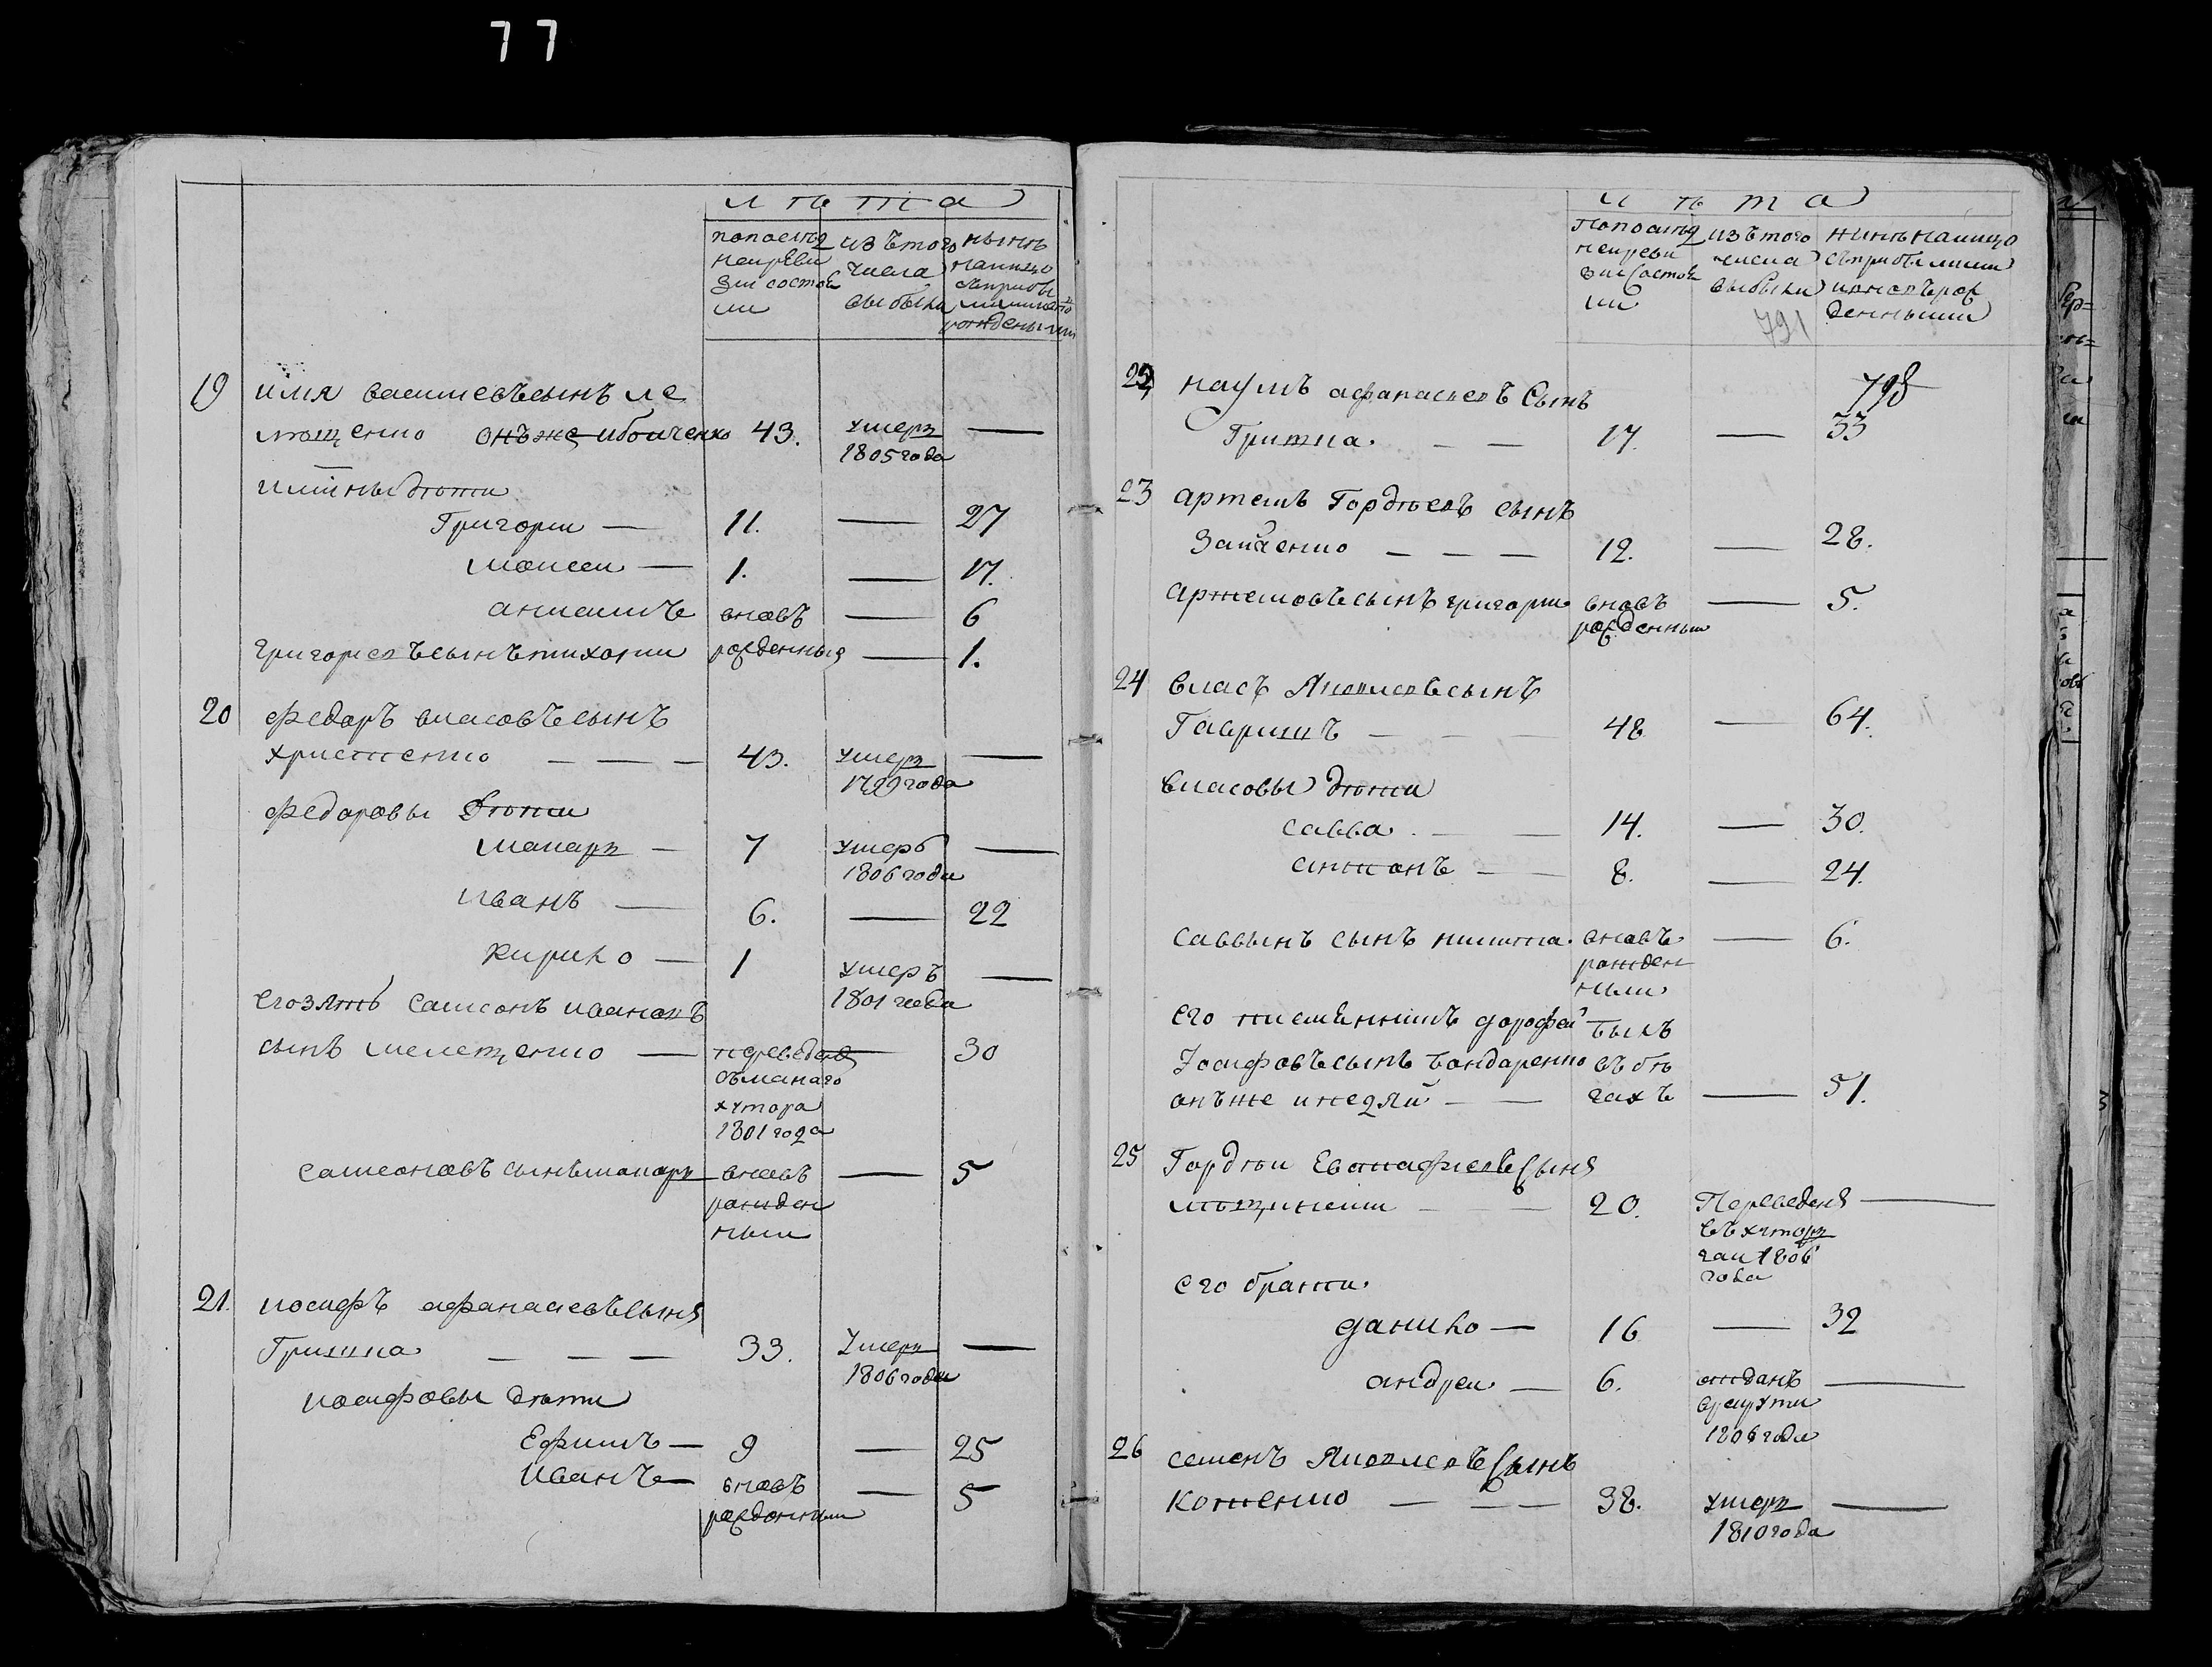 77
лѣта
попослѣд
неиреви
зии состоя
ли
изътого
числа
выбыли
нынѣ
налицо
съприбы
лымииново
рождеными
19 илия василиевъсынъ ле
мощенко онъже ибойченко 43. умеръ —
1805 года
илиины дѣти
Григории — 11. — 27
моисеи — 1. — 17.
анисимъ вновъ — 6
григориевъсынътихонъ рожденныя — 1.
20 федоръ власовъсынъ
христенко — — — 43. умеръ —
1799 года
федоровы дѣти
макаръ — 7 умеръ —
1806 года
иванъ — 6. — 22
кирило — 1 умеръ —
1801 года
егозять самсонъ ивановъ
сынъ мелещенко — переведенъ — 30
хутора
1801 года
самсоновъ сынъмакаръ вновъ — 5
рожден
ныи
21. иосифъ афанасиевъсынъ
Гришка — — — 33. Умеръ —
1806 года
иосифовы дѣти
Ефимъ — 9 — 25
Иванъ — вновъ — 5
рожденныи
лѣта
попослѣд
неиреви
зиисостоя
ли
изътого
числа
выбыли
791
нынѣналицо
съприбылыми
иновърож
денными
798
22 наумъ афанасиевъ Сынъ
Гришка. — — 17. — 33
23 артемъ Гордѣевъ сынъ
Зайченко — — — 12. — 28.
артемовъсынъ григории вновъ — 5.
рожденныи
24 власъ Яковлевъсынъ
Гавришъ — — — 48 — 64.
власовы дѣти
савва. — — 14. — 30.
антонъ — — 8. — 24.
саввынъ сынъ никита. вновъ — 6.
рожден
ныи
его племянникъ дорофеи былъ
Иосифовъсынъ бондаренко въбѣ
онъже — — гахъ — 51.
25 Гордѣи Евстафиевъ Сынъ
— — 20. Переведенъ —
въхуторъ
гаи 1806
года
его братя
данило — 16 — 32
андреи — 6. отданъ —
врекруты
1806 года
26 семенъ Яковлевъ Сынъ
— — — 38. умеръ —
1810 года